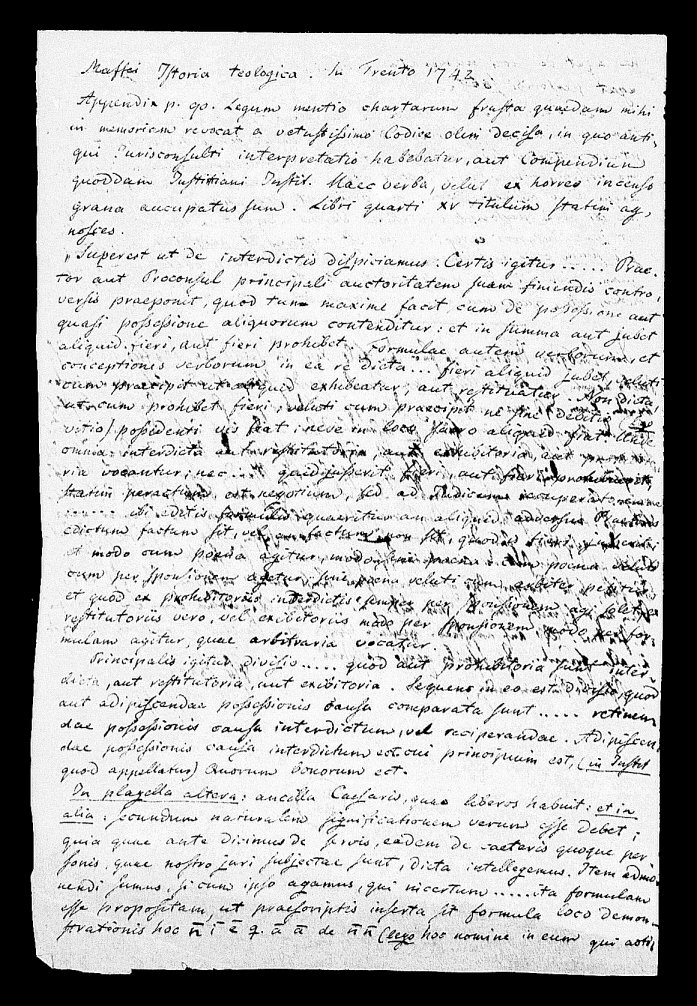 Maffei Istoria teologica. In Trento 1742
Appendix p. 90. Legum mentio chartarum frusta quaedam mihi
in memoriam revocat a vetustissimo Codice olim decisa, in quo anti-
qui Jurisconsulti interpretatio habebatur, aut Compendium
quoddam Justiniani Instit. Haec verba, velut ex horreo incenso
grana aucupatus sum. Libri quarti XV titulum statim ag,
nosces.
Superest ut de interdictis dispiciamus. Certis igitur ..... Prae-
tor aut Proconsul principali auctoritatem suam finiendis contro,
versiis praeponit, quod tum maxime facit cum de possessione aut
quasi possessione aliquorum contenditur: et in summa aut jubet
aliquid fieri, aut fieri prohibet. Formulae autem verborum, et
conceptiones verborum in ea re dicta... fieri aliquid jubet, veluti
cum praecipit ut aliquid exhibeatur, aut restituatur.
ut cum prohibet fieri, veluti cum praecipit ne sine
vitio) possidenti vis fiat, neve in loco sacro aliquid fiat. Unde
omnia interdicta aut restitutoria, aut exhibitoria, aut
ria vocantur; nec .... quid jusserit fieri, aut fieri prohibuerit,
statim peractum est negotium, sed ad Judicem recuperatoresve
...... ibi editis formulis quaeritur an aliquid adversus Praetoris
edictum factum sit, vel an factum non sit, quod is fieri jusserit
et modo cum poena agitur, modo sine poena: cum poena veluti
cum per sponsionem agitur, sine poena veluti cum arbiter petitur
et quod ex prohibitoriis interdictis semper per sponsionem agi solet, ex
restitutoriis vero, vel exibitoriis modo per sponsionem modo per for-
mulam agitur, quae arbitraria vocatur.
Principalis igitur divisio ..... quod aut prohibitoria sunt inter-
dicta, aut restitutoria, aut exibitoria. Sequens in eo est divisio, quod
aut adipiscendae possessionis causa comparata sunt ..... retinen
dae possessionis causa interdictum, vel reciperandae. Adipiscen
dae possessionis causa interdictum est cui principium est, (in Instit
quod appellatur) Quorum bonorum est.
In plagella altera: ancilla Caesaris, quae liberos habuit: et in
alia: secundum naturalem significationem verum esse debet;
quia quae ante diximus de servis, eadem de caeteris quoque per
sonis, quae nostro juri subjectae sunt, dicta intellegemus. Item admo
nendi sumus, si cum ipso agamus, qui incertum ..... ita formulam
esse propositam, ut praescriptis inserta sit formula loco demon-
strationis hoc (lego hoc nomine in eum qui